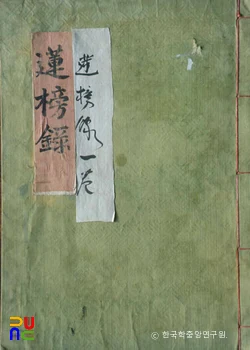 蓮榜錄
蓮榜錄一卷
© 한국학중앙연구원